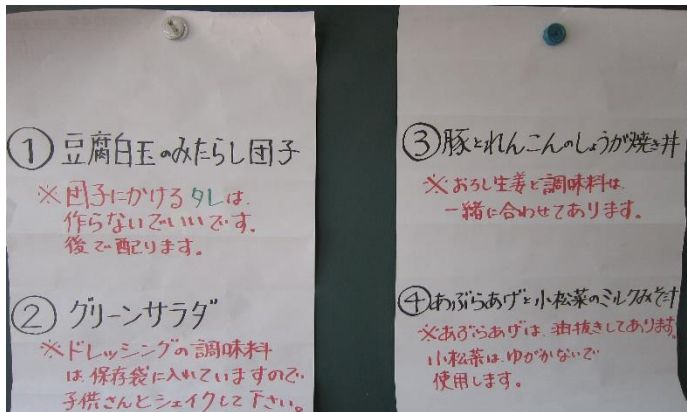 ① 豆腐白玉のみたらし団子
※団子にかけるタレは、
作らないでいいです。
後で配ります。
② グリーンサラダ
※ドレッシングの調味料
は、保存袋に入れていますので
子供さんとシェイクして下さい。
③ 豚とれんこんのしょうが焼き丼
※おろし生姜と調味料は、
一緒に合わせてあります。
④ あぶらあげと小松菜のミルクみそ汁
※あぶらあげは、油抜きしてあります。
小松菜は、ゆがかないで
使用します。